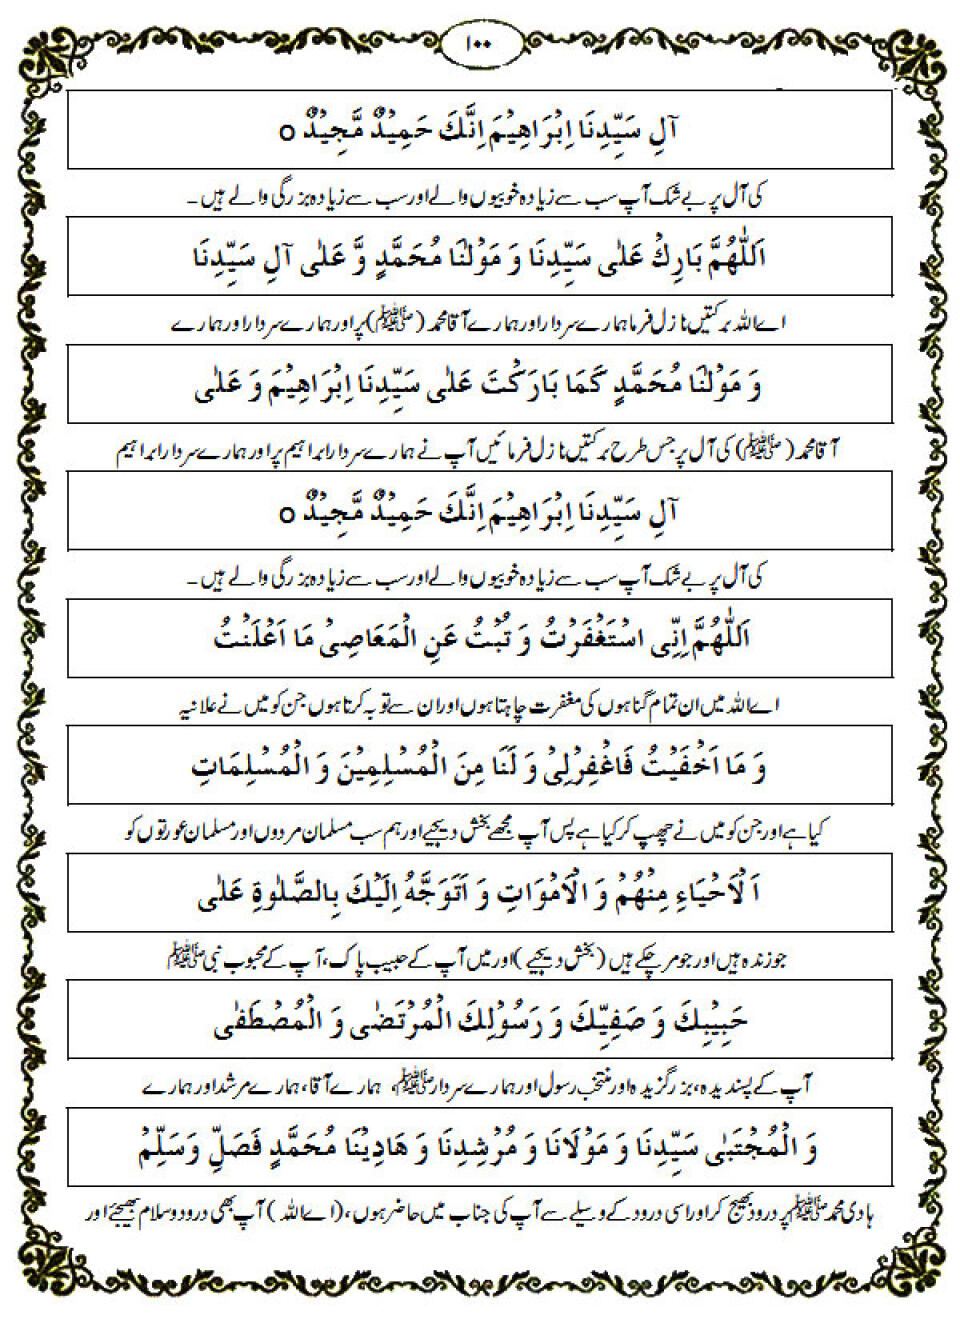 ۱۰۰
آلِ سَيِّدِنَا اِبْرَاهِيْمَ اِنَّكَ حَمِيْدٌ مَّجِيْدٌ o
کی آل پر بے شک آپ سب سے زیادہ خوبیوں والے اور سب سے زیادہ بزرگی والے ہیں۔
اَللّٰهُمَّ بَارِكْ عَلٰى سَيِّدِنَا وَ مَوْلٰنَا مُحَمَّدٍ وَّ عَلٰى آلِ سَيِّدِنَا
اے اللہ برکتیں نازل فرما ہمارے سردار اور ہمارے آقا محمد (ﷺ) پر اور ہمارے سردار اور ہمارے
وَ مَوْلٰنَا مُحَمَّدٍ كَمَا بَارَكْتَ عَلٰى سَيِّدِنَا اِبْرَاهِيْمَ وَ عَلٰى
آقا محمد (ﷺ) کی آل پر جس طرح برکتیں نازل فرمائیں آپ نے ہمارے سردار ابراہیم پر اور ہمارے سردار ابراہیم
آلِ سَيِّدِنَا اِبْرَاهِيْمَ اِنَّكَ حَمِيْدٌ مَّجِيْدٌ o
کی آل پر بے شک آپ سب سے زیادہ خوبیوں والے اور سب سے زیادہ بزرگی والے ہیں۔
اَللّٰهُمَّ اِنِّى اسْتَغْفَرْتُ وَ تُبْتُ عَنِ الْمَعَاصِىْ مَا اَعْلَنْتُ
اے اللہ میں ان تمام گناہوں کی مغفرت چاہتا ہوں اور ان سے توبہ کرتا ہوں جن کو میں نے علانیہ
وَ مَا اَخْفَيْتُ فَاغْفِرْلِىْ وَ لَنَا مِنَ الْمُسْلِمِيْنَ وَ الْمُسْلِمَاتِ
کیا ہے اور جن کو میں نے چھپ کر کیا ہے پس آپ مجھے بخش دیجیے اور ہم سب مسلمان مردوں اور مسلمان عورتوں کو
اَلْاَحْيَاءِ مِنْهُمْ وَ الْاَمْوَاتِ وَ اَتَوَجَّهُ اِلَيْكَ بِالصَّلٰوةِ عَلٰى
جو زندہ ہیں اور جو مر چکے ہیں (بخش دیجیے) اور میں آپ کے حبیب پاک، آپ کے محبوب نبی ﷺ
حَبِيْبِكَ وَ صَفِيِّكَ وَ رَسُوْلِكَ الْمُرْتَضٰى وَ الْمُصْطَفٰى
آپ کے پسندیدہ، بزرگزیدہ اور منتخب رسول اور ہمارے سردار ﷺ، ہمارے آقا، ہمارے مرشد اور ہمارے
وَ الْمُجْتَبٰى سَيِّدِنَا وَ مَوْلَانَا وَ مُرْشِدِنَا وَ هَادِيْنَا مُحَمَّدٍ فَصَلِّ وَسَلِّمْ
ہادی محمد ﷺ پر درود بھیج کر اور اسی درود کے وسیلے سے آپ کی جناب میں حاضر ہوں، (اے اللہ) آپ بھی درود و سلام بھیجئے اور